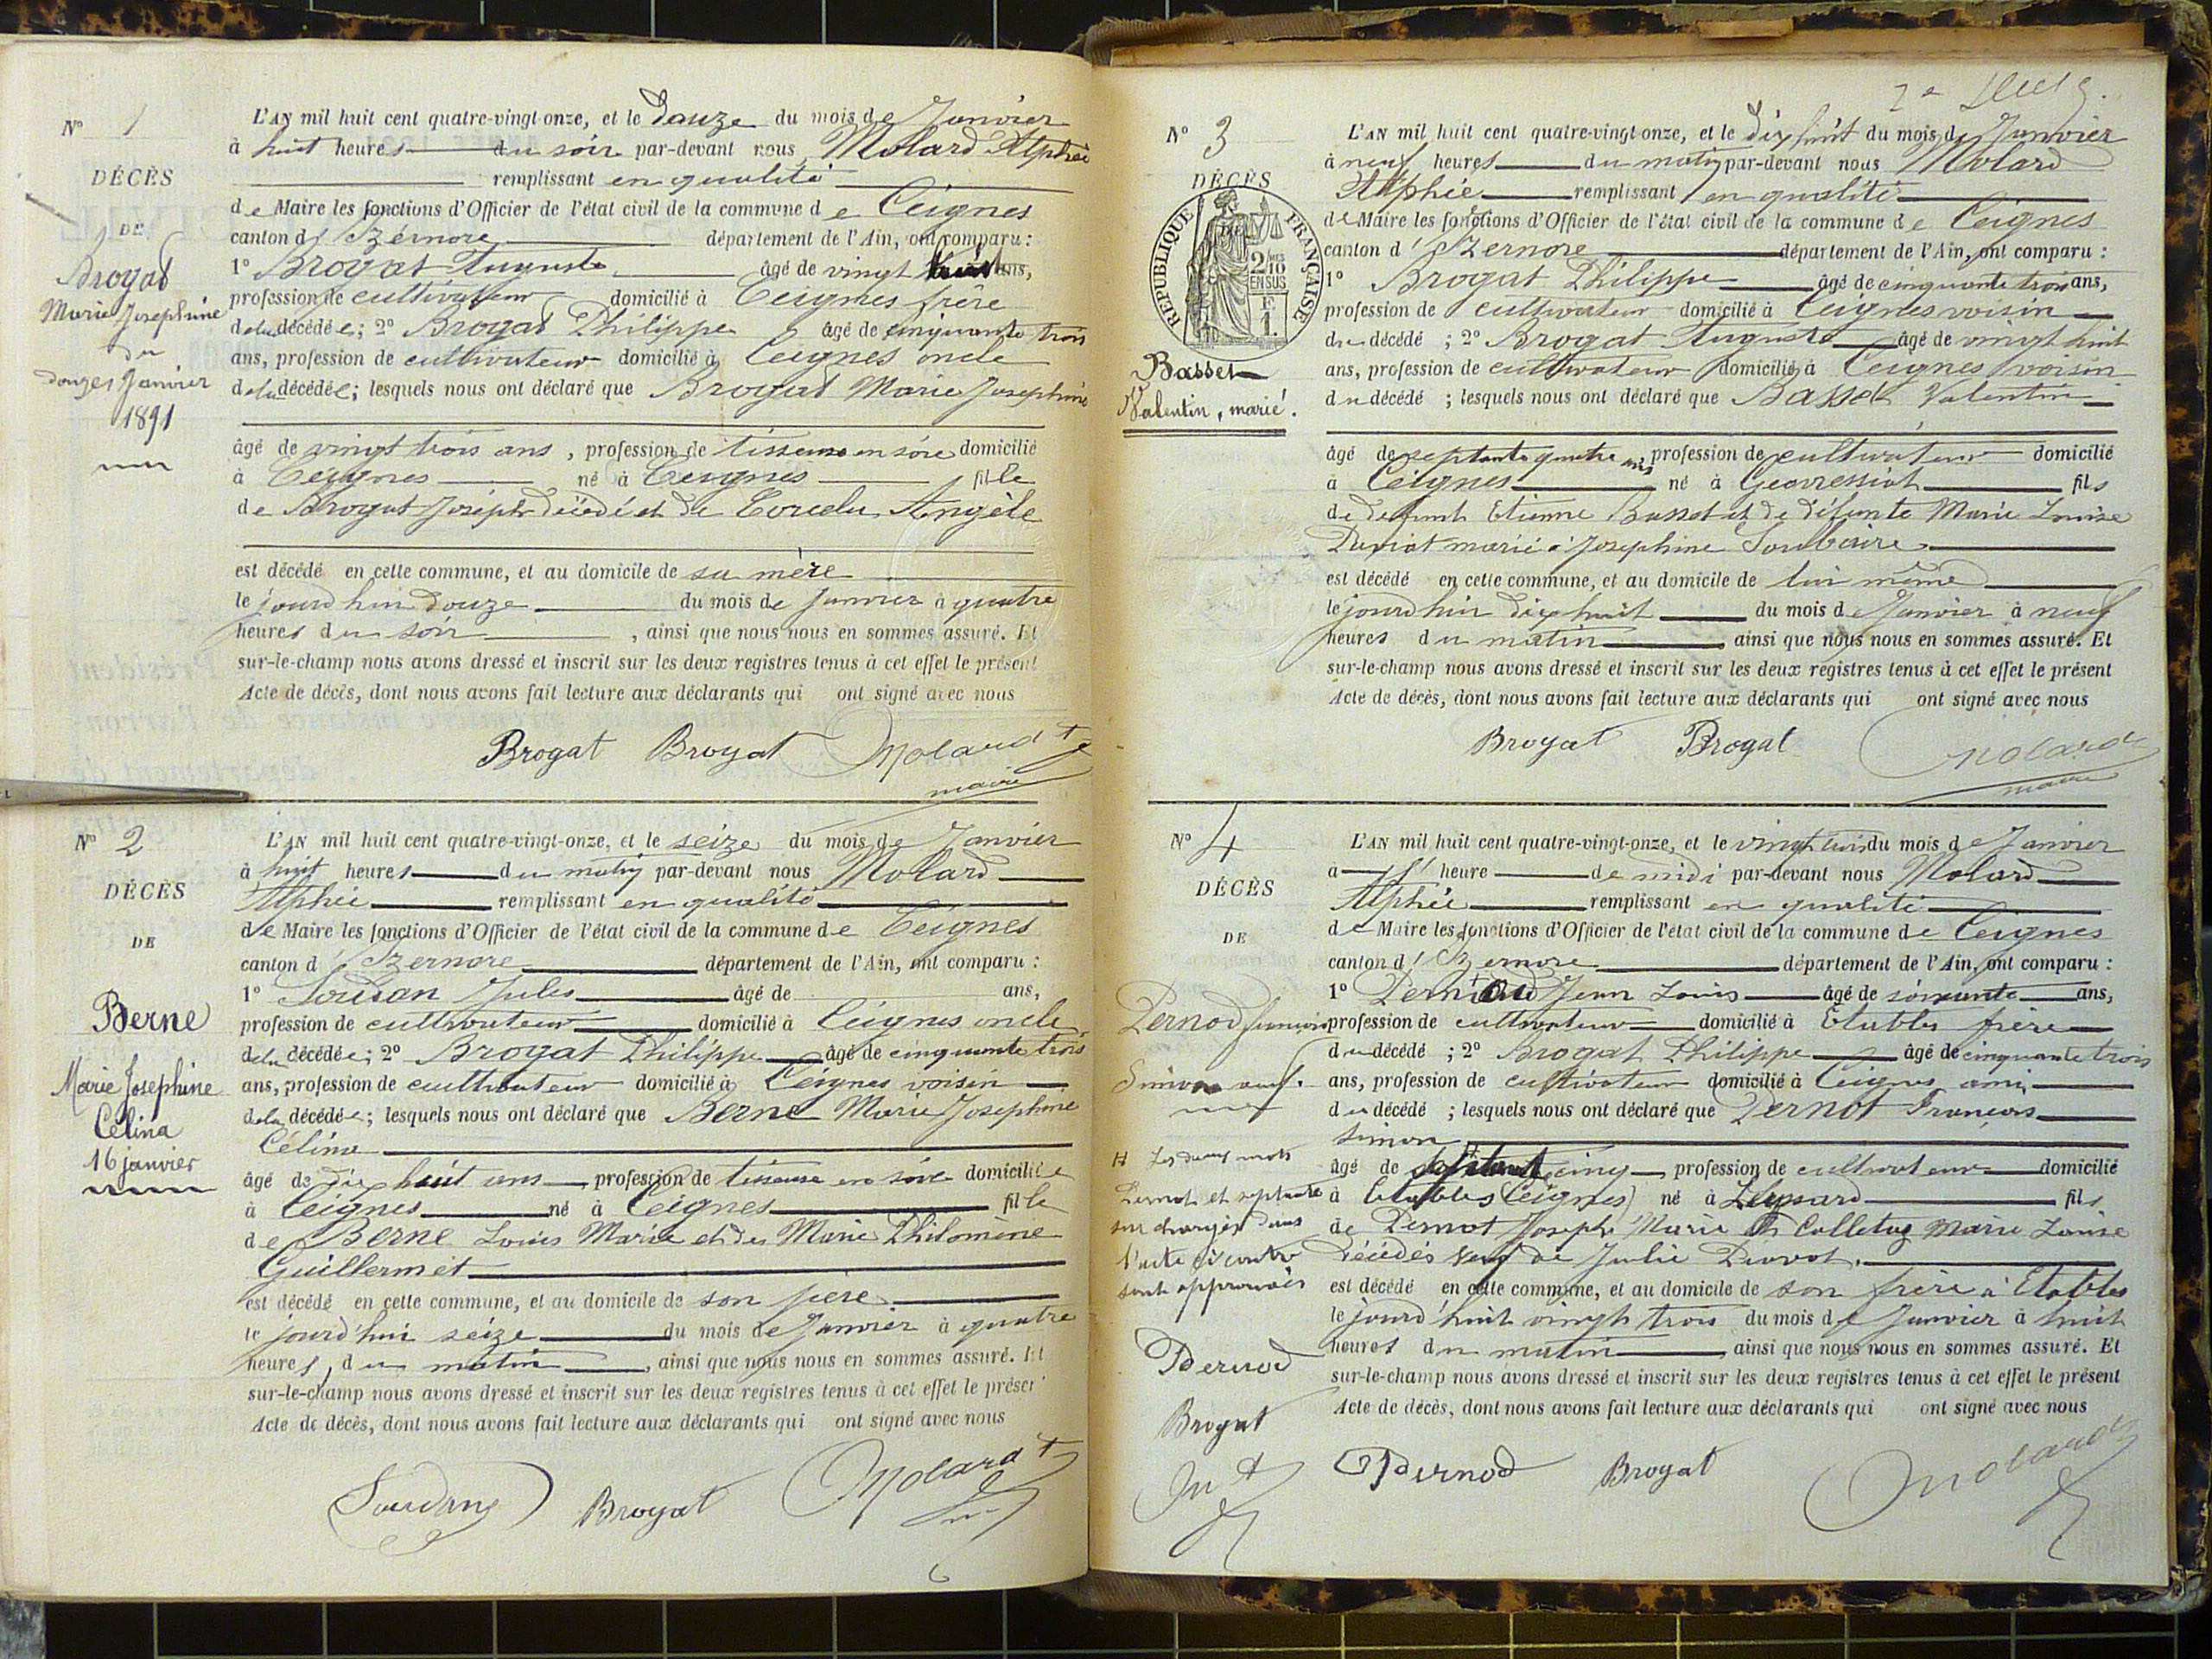 N° 1
DÉCÈS
DE
Brogat
Marie Josephine
du
douzes Janvier
1891
L'AN mil huit cent quatre-vingt-onze, et le douze du mois de Janvier
à huit heures du soir par-devant nous Molard Alphée
remplissant en qualité
de Maire les fonctions d'Officier de l'état civil de la commune de Ceignes
canton d'Izernore département de l'Ain, ont comparu :
1° Brogat Auguste âgé de vingt huit ans,
profession de cultivateur domicilié à Ceignes frère
de la décédée ; 2° Brogat Philippe âgé de cinquante trois
ans, profession de cultivateur domicilié à Ceignes oncle
de la décédée ; lesquels nous ont déclaré que Brogat Marie Josephine
âgé de vingt trois ans, profession de tisseuse en soie domicilié
à Ceignes né à Ceignes fille
de Brogat Joseph décédé et de Angèle
est décédé en cette commune, et au domicile de sa mère
le jourd'hui douze du mois de Janvier à quatre
heures du soir, ainsi que nous nous en sommes assuré. Et
sur-le-champ nous avons dressé et inscrit sur les deux registres tenus à cet effet le présent
Acte de décès, dont nous avons fait lecture aux déclarants qui ont signé avec nous
Brogat Brogat Molard
maire
N° 2
DÉCÈS
DE
Berne
Marie Josephine
Célina
16 janvier
L'AN mil huit cent quatre-vingt-onze, et le seize du mois de Janvier
à huit heures du matin par-devant nous Molard
Alphée remplissant en qualité
de Maire les fonctions d'Officier de l'état civil de la commune de Ceignes
canton d'Izernore département de l'Ain, ont comparu :
1° Soudan Jules âgé de ans,
profession de cultivateur domicilié à Ceignes oncle
de la décédée ; 2° Brogat Philippe âgé de cinquante trois
ans, profession de cultivateur domicilié à Ceignes voisin
de la décédée ; lesquels nous ont déclaré que Berne Marie Josephine
Célina
âgé de dix huit ans, profession de tisseuse en soie domiciliée
à Ceignes né à Ceignes fille
de Berne Louis Marie et de Marie Philomène
Guillermet
est décédé en cette commune, et au domicile de son père
le jourd'hui seize du mois de Janvier à quatre
heures du matin, ainsi que nous nous en sommes assuré. Et
sur-le-champ nous avons dressé et inscrit sur les deux registres tenus à cet effet le présent
Acte de décès, dont nous avons fait lecture aux déclarants qui ont signé avec nous
Soudan Brogat Molard
N° 3
DÉCÈS
RÉPUBLIQUE FRANÇAISE
2/10 EN SUS
F. 1.
Basset
Valentin, marié.
L'AN mil huit cent quatre-vingt-onze, et le dix huit du mois de Janvier
à neuf heures du matin par-devant nous Molard
Alphée remplissant en qualité
de Maire les fonctions d'Officier de l'état civil de la commune de Ceignes
canton d'Izernore département de l'Ain, ont comparu :
1° Brogat Philippe âgé de cinquante trois ans,
profession de cultivateur domicilié à Ceignes voisin
du décédé ; 2° Brogat Auguste âgé de vingt huit
ans, profession de cultivateur domicilié à Ceignes voisin
du décédé ; lesquels nous ont déclaré que Basset Valentin
âgé de septante quatre ans profession de cultivateur domicilié
à Ceignes né à Geovressiat fils
de défunt Etienne Basset et de défunte Marie Louise
marié à Josephine
est décédé en cette commune, et au domicile de lui même
le jourd'hui dix huit du mois de Janvier à neuf
heures du matin ainsi que nous nous en sommes assuré. Et
sur-le-champ nous avons dressé et inscrit sur les deux registres tenus à cet effet le présent
Acte de décès, dont nous avons fait lecture aux déclarants qui ont signé avec nous
Brogat Brogat Molard
maire
N° 4
DÉCÈS
DE
Pernod françois
Simon veuf.
Les deux mots
Pernot et septante
surchargés dans
l'acte ci contre
sont approuvés
Pernod
Brogat
L'AN mil huit cent quatre-vingt-onze, et le vingt trois du mois de Janvier
à heure de midi par-devant nous Molard
Alphée remplissant en qualité
de Maire les fonctions d'Officier de l'état civil de la commune de Ceignes
canton d'Izernore département de l'Ain, ont comparu :
1° Pernod Jean Louis âgé de soixante ans,
profession de cultivateur domicilié à Etables frère
du décédé ; 2° Brogat Philippe âgé de cinquante trois
ans, profession de cultivateur domicilié à Ceignes ami
du décédé ; lesquels nous ont déclaré que Pernot François
Simon
âgé de septante cinq profession de cultivateur domicilié
à Etables (Ceignes) né à Leyssard fils
de Pernot Joseph Marie et Colletaz Marie Louise
décédés veuf de Julie
est décédé en cette commune, et au domicile de son frère à Etables
le jourd'huit vingt trois du mois de Janvier à huit
heures du matin ainsi que nous nous en sommes assuré. Et
sur-le-champ nous avons dressé et inscrit sur les deux registres tenus à cet effet le présent
Acte de décès, dont nous avons fait lecture aux déclarants qui ont signé avec nous
Pernod Brogat Molard